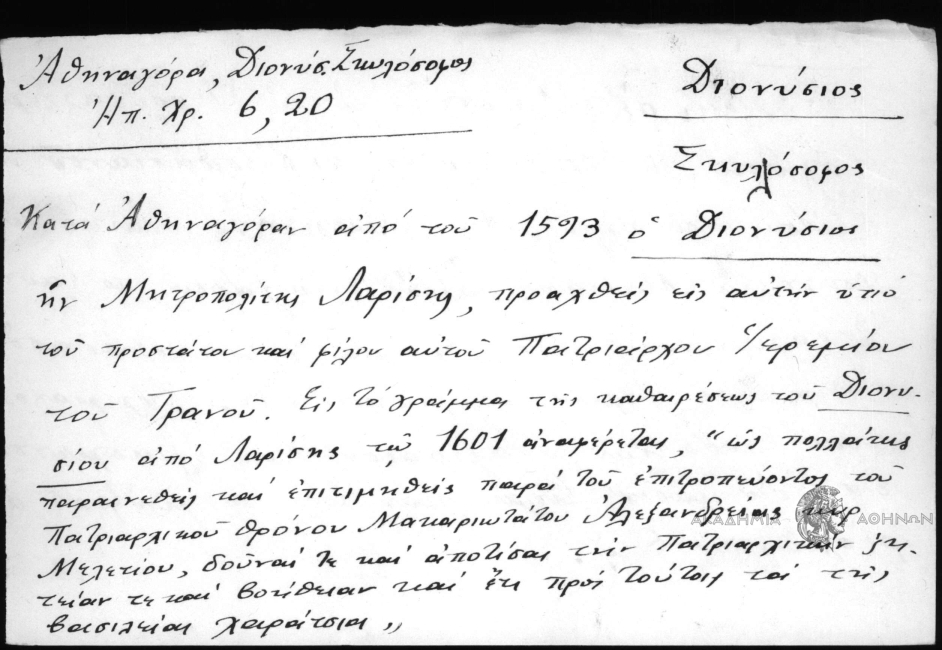 Ἀθηναγόρα, Διονύσ. Σκυλόσοφος
Ἠπ. Χρ. 6, 20
Διονύσιος
Σκυλόσοφος
Κατά Ἀθηναγόραν ἀπό τοῦ 1593 ὁ Διονύσιος
ἦν Μητροπολίτης Λαρίσης, προαχθείς εἰς αὐτήν ὑπό
τοῦ προστάτου καί φίλου αὐτοῦ Πατριάρχου Ἱερεμίου
τοῦ Τρανοῦ. Εἰς τό γράμμα τῆς καθαιρέσεως τοῦ Διονυ-
σίου ἀπό Λαρίσης τῷ 1601 ἀναφέρεται, "ὡς πολλάκις
παραινεθείς καί ἐπιτιμηθείς παρά τοῦ ἐπιτροπεύοντος τοῦ
Πατριαρχικοῦ θρόνου Μακαριωτάτου Ἀλεξανδρείας κυρ
Μελετίου, δοῦναί τε καί ἀποτίσαι τήν Πατριαρχικήν ζη-
τείαν τε καί βοήθειαν καί ἔτι πρός τούτοις τά τῆς
βασιλείας χαράτσια „
ΑΚΑΔΗΜΙΑ ΑΘΗΝΩΝ